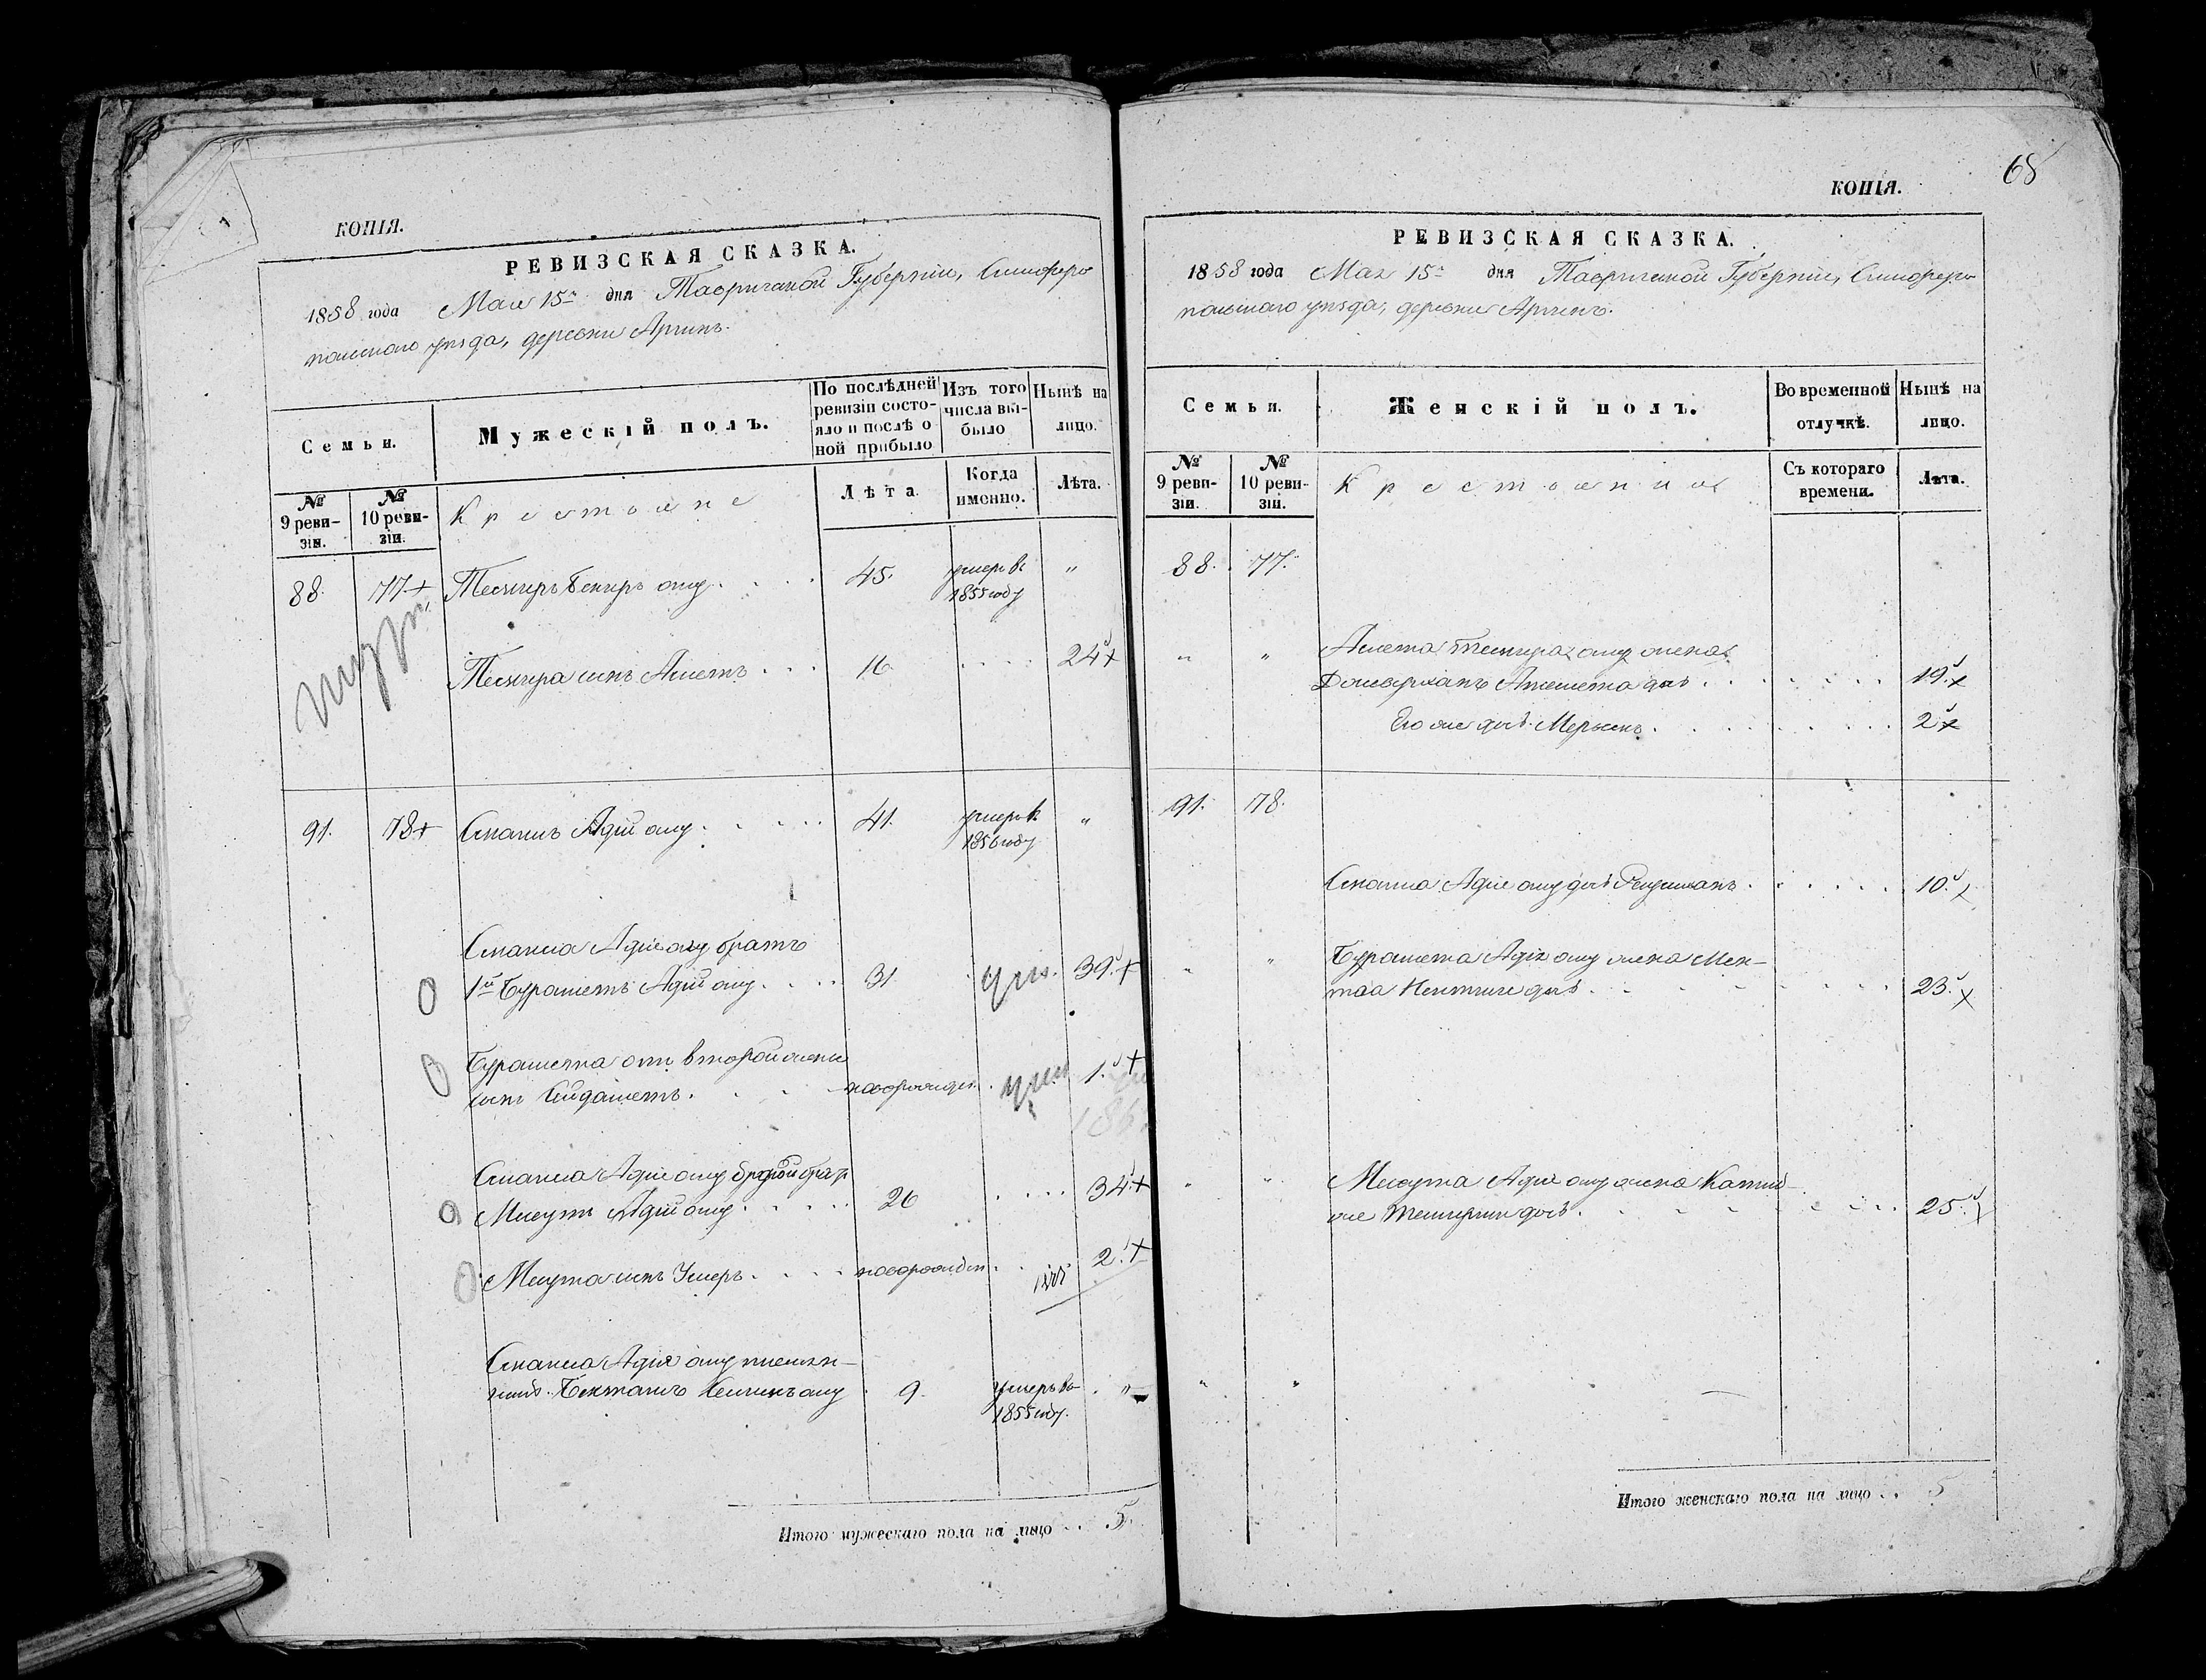 КОПІЯ.
РЕВИЗСКАЯ СКАЗКА.
1858 года Мая 15го дня Таврической Губерніи, Симферо
польскаго уѣзда, деревни Аргинъ.
Семьи.
Мужескій полъ.
По послѣдней ревизіи состояло и послѣ оной прибыло
Изъ того числа выбыло
Нынѣ на лицо.
№ 9 ревизіи.
№ 10 ревизіи.
Крестьяне
Лѣта.
Когда именно.
Лѣта.
88. 77.+ Темиръ Бекиръ оглу 45. умеръ въ 1855 году "
Темира сынъ Асметъ 16 24+
91. 78+ Смаилъ Аджи оглу 41. умеръ въ 1856 году "
Смаила Аджи оглу братъ
1й Бурашетъ Аджи оглу 31 ум. 39.+
Бурашета отъ второй жены
сынъ Сейдаметъ новорожден. ум 1.+
186
Смаила Аджи оглу второй братъ
Мисутъ Аджи оглу 26 34.+
Мисута сынъ Умеръ новорожден. 2.+
Смаила Аджи оглу племян-
никъ Бекташъ оглу 9. умеръ въ 1855 году. "
Итого мужескаго пола на лицо 5.
КОПІЯ.
68
РЕВИЗСКАЯ СКАЗКА.
1858 года Мая 15го дня Таврической Губерніи, Симферо
польскаго уѣзда, деревни Аргинъ.
Семьи.
Женскій полъ.
Во временной отлучкѣ.
Нынѣ на лицо.
№ 9 ревизіи.
№ 10 ревизіи.
Крестьянки
Съ котораго времени.
Лѣта.
88. 77.
" " Асмета Темира оглу жена
Аметова дочь 19.+
Его же дочь Мерьемъ 2+
91. 78.
Смаила Аджи оглу дочь 10.+
" " Бурашета Аджи оглу жена
дочь 23.+
" " Мисута Аджи оглу жена Катид-
же дочь 25.+
" "
Итого женскаго пола на лицо 5